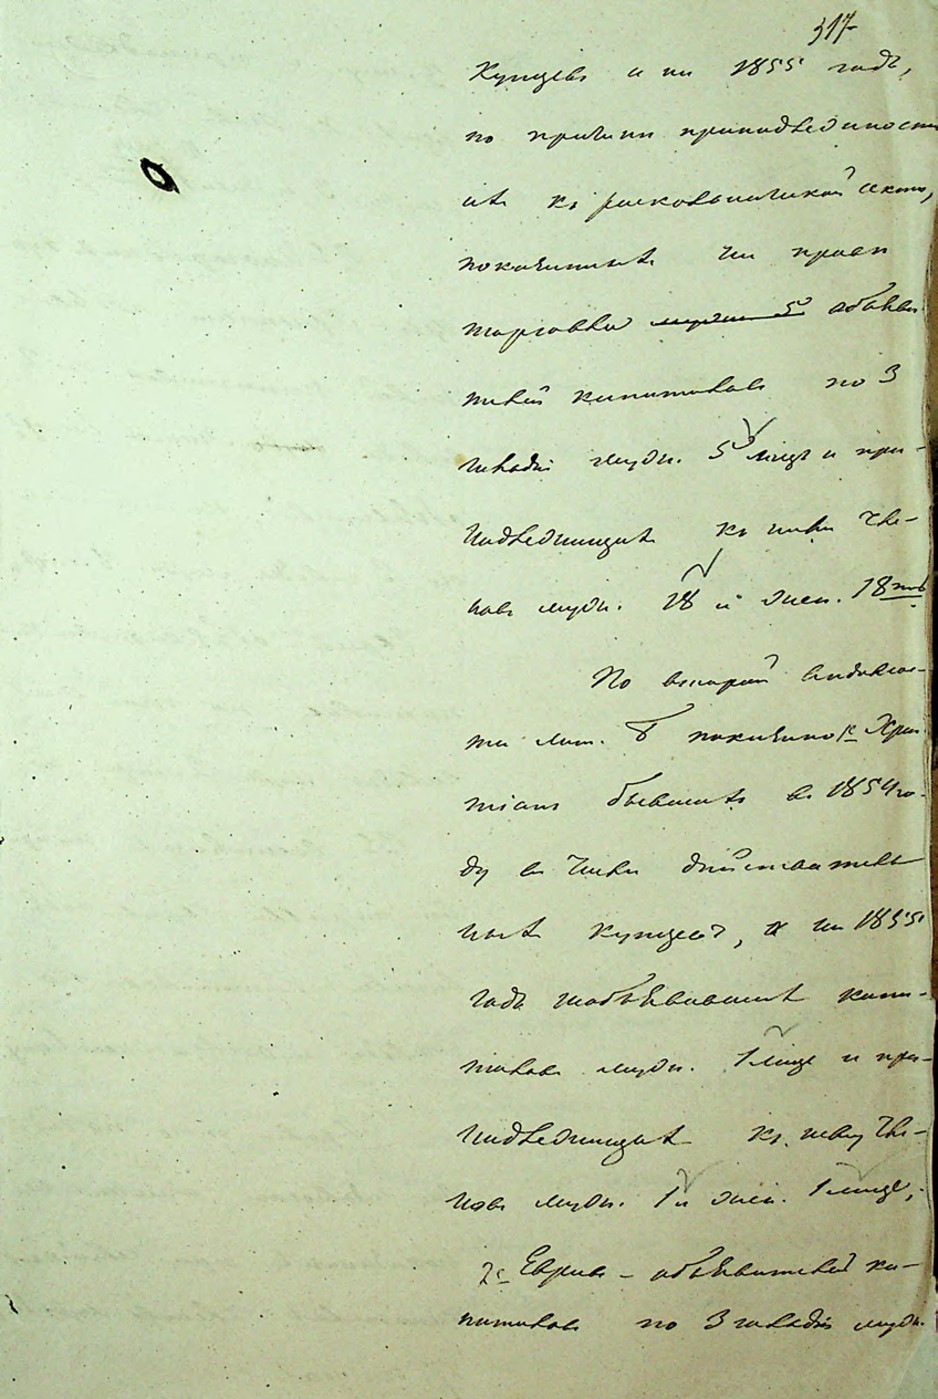 317
Купцовъ и на 1855 годъ,
по причинѣ принадлежности
ихъ къ раскольнической сектѣ,
показанныхъ на правѣ
торговли муж 5 объяви
телей капиталовъ по 3
гильдіи муж. 5 лицъ и при-
надлежащихъ къ нимъ чле-
новъ муж. 18 и жен. 18
По второй вѣдомос-
ти лит. Б показано 1е Хрис
тіанъ бывшихъ въ 1854 го-
ду въ числѣ дѣйствитель
ныхъ купцовъ, а на 1855
годъ необъявившихъ капи-
таловъ муж. 1 лице и при-
надлежащихъ къ нему чле-
новъ муж. 1 и жен. 1 лице,
2е Евреевъ – объявителей ка-
питаловъ по 3 гильдіи муж.